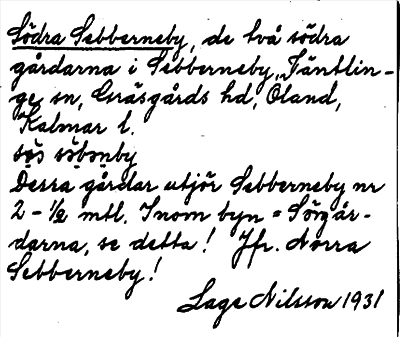 Södra Sebberneby, de två södra
gårdarna i Sebberneby, Väntlin-
ge sn, Gräsgårds hd, Öland,
Kalmar l.
sös söbønby
Dessa gårdar utjör Sebberneby nr
2 - 1/2 mtl. Inom byn = Sörgår-
darna, se detta! Jfr. Norra
Sebberneby!
Lage Nilsson 1931